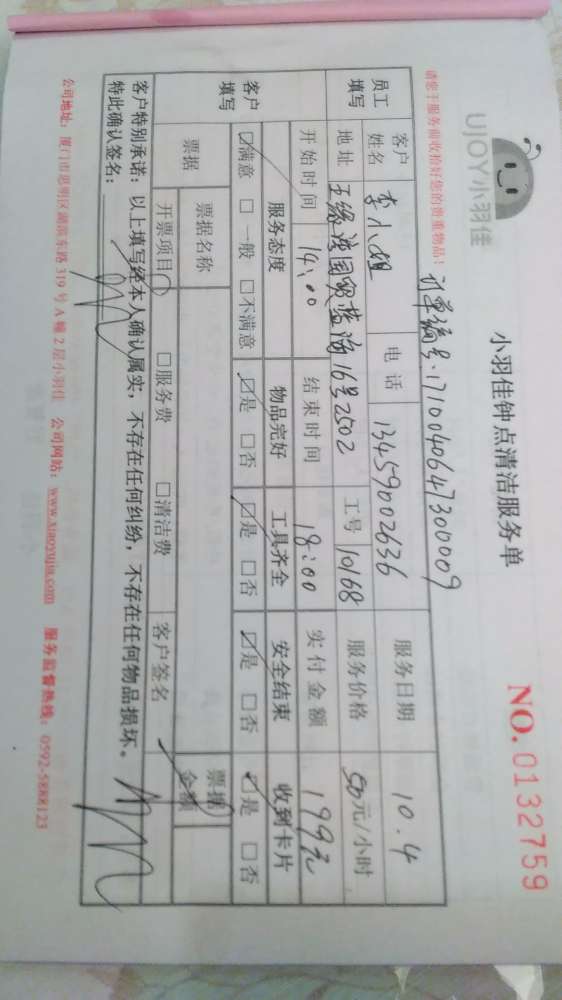 UJOY小羽佳
小羽佳钟点清洁服务单
NO. 0132759
请您于服务前收拾好您的贵重物品!
订单编号:1710040647300009
员工填写 客户姓名 李小姐 电话 13459002636 服务日期 10.4
地址 16号2502 工号 10168 服务价格 50元/小时
开始时间 14:00 结束时间 18:00 实付金额 199元
客户填写 服务态度 物品完好 工具齐全 安全结束 收到卡片
☑满意 □一般 □不满意 ☑是 □否 ☑是 □否 ☑是 □否 ☑是 □否
票据 票据名称 票据金额
开票项目 □服务费 □清洁费 客户签名
客户特别承诺:以上填写经本人确认属实,不存在任何纠纷,不存在任何物品损坏。
特此确认签名:
公司地址:厦门市思明区湖滨东路319号A幢2层小羽佳 公司网站:www.xiaoyujia.com 服务监督热线:0592-5888123